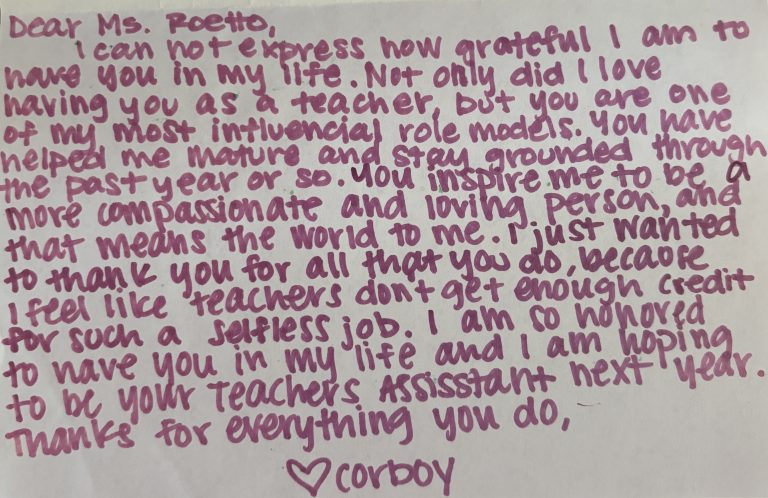 Dear Ms. Roetto,
I can not express how grateful I am to
have you in my life. Not only did I love
having you as a teacher, but you are one
of my most influencial role models. You have
helped me mature and stay grounded through
the past year or so. You inspire me to be a
more compassionate and loving person, and
that means the world to me. I just wanted
to thank you for all that you do, because
I feel like teachers dont get enough credit
for such a selfless job. I am so honored
to have you in my life and I am hoping
to be your Teachers Assisstant next year.
Thanks for everything you do,
♡corboy